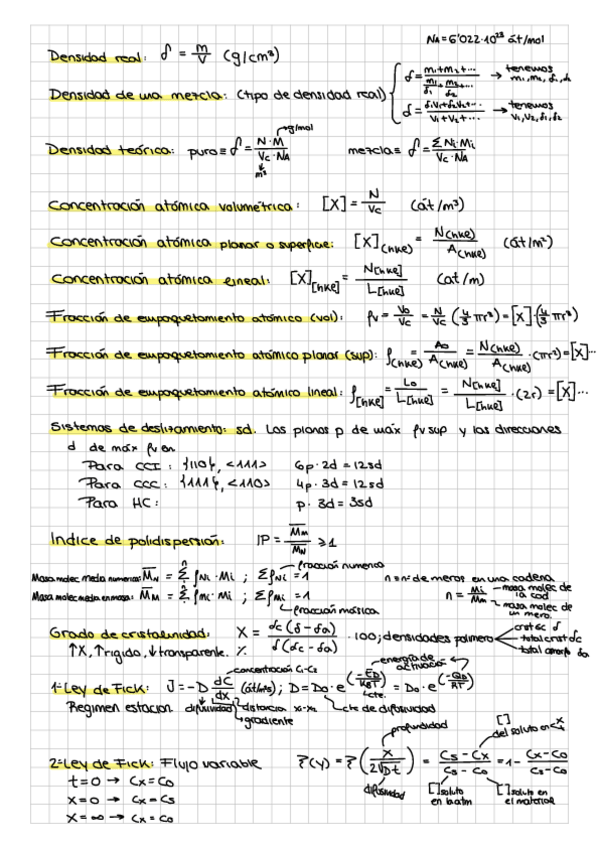 NA = 6'022·10²³ át/mol
Densidad real: δ = m/V (g/cm³)
Densidad de una mezcla: (tipo de densidad real) { δ = (m₁+m₂+···)/(m₁/δ₁ + m₂/δ₂ + ···) → tenemos m₁, m₂, δ₁, δ₂
δ = (δ₁V₁+δ₂V₂+···)/(V₁+V₂+···) → tenemos V₁, V₂, δ₁, δ₂
Densidad teórica: puro ≡ δ = N·M/(Vc·NA) → g/mol ↓ m³ mezcla ≡ δ = ΣNi·Mi/(Vc·NA)
Concentración atómica volumétrica: [X] = N/Vc (át/m³)
Concentración atómica planar o superficie: [X](hke) = N(hke)/A(hke) (át/m²)
Concentración atómica lineal: [X][hke] = N[hke]/L[hke] (at/m)
Fracción de empaquetamiento atómico (vol): ρv = Vo/Vc = N/Vc (4/3 πr³) = [X]·(4/3 πr³)
Fracción de empaquetamiento atómico planar (sup): ρ(hke) = Ao/A(hke) = N(hke)/A(hke) · (πr²) = [X]···
Fracción de empaquetamiento atómico lineal: ρ[hke] = Lo/L[hke] = N[hke]/L[hke] · (2r) = [X]···
Sistemas de deslizamiento: sd. Los planos p de máx ρv sup y las direcciones
d de máx ρv en
Para CCI: {110}, <111> 6p·2d = 12sd
Para CCC: {111}, <110> 4p·3d = 12sd
Para HC: p·3d = 3sd
Indice de polidispersión: IP = M̅m/M̅N ≥ 1
Masa molec media numérica: M̅N = Σ ρNi·Mi ; ΣρNi = 1 → fracción numérica n ≡ nº de meros en una cadena
Masa molec media en masa: M̅M = Σ ρmi·Mi ; Σρmi = 1 → fracción másica n = Mi/Mm → masa molec de la cad → masa molec de un mero.
Grado de cristalinidad: X = δc(δ-δa)/δ(δc-δa) · 100; densidades polimero
↑X, ↑rigido, ↓transparente. %
1ª Ley de Fick: J = -D dC/dx (át/m²s); D = D₀·e^(-ED/KBT) = D₀·e^(-QD/RT)
concentración C₁-C₂
energía de activación
cte.
Regimen estacion. difusividad distancia x₁-x₂ cte de difusividad
gradiente
2ª Ley de Fick: Flujo variable
profundidad
[] del soluto en x
difusividad
[] soluto en la atm
[] soluto en el material
t=0 → Cx = C₀
x=0 → Cx = Cs
x=∞ → Cx = C₀